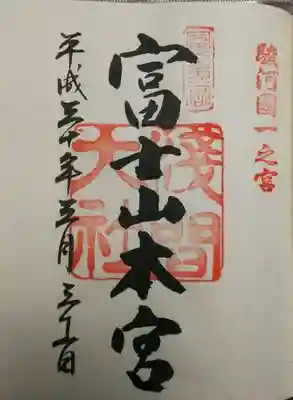 駿河國一之宮
富士山本宮
淺間大社
平成三十年三月三十一日